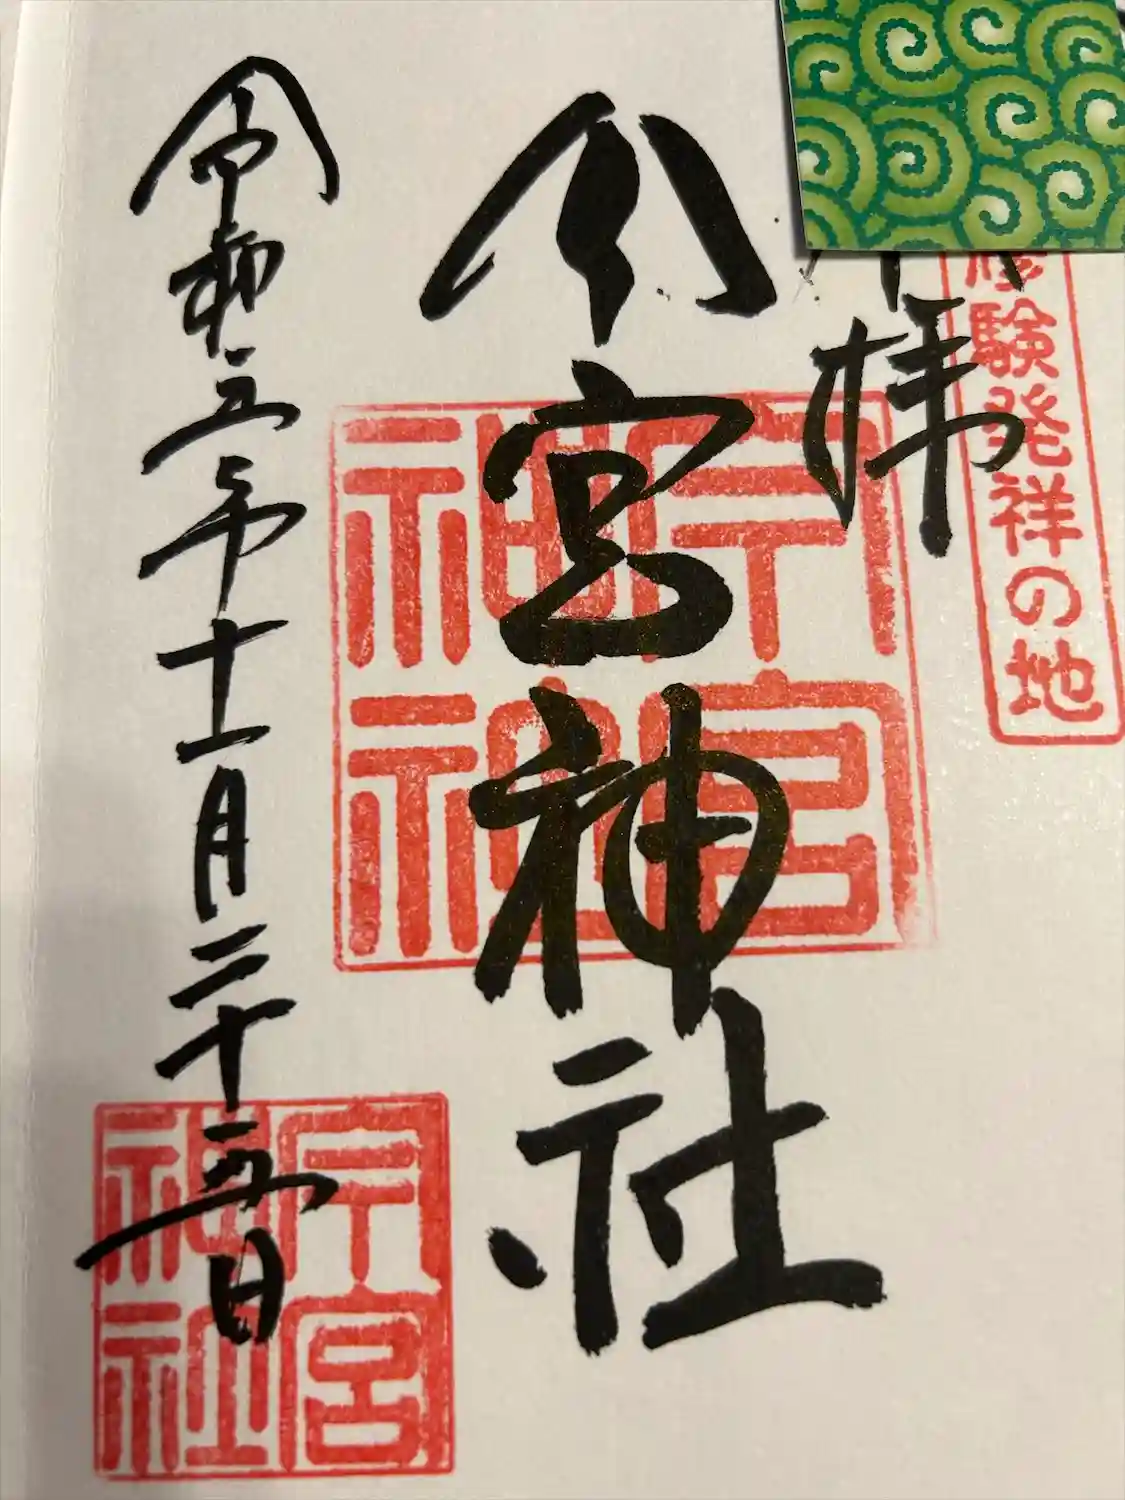 修験発祥の地
拝
今宮神社
令和五年十一月二十五日
今宮神社
今宮神社